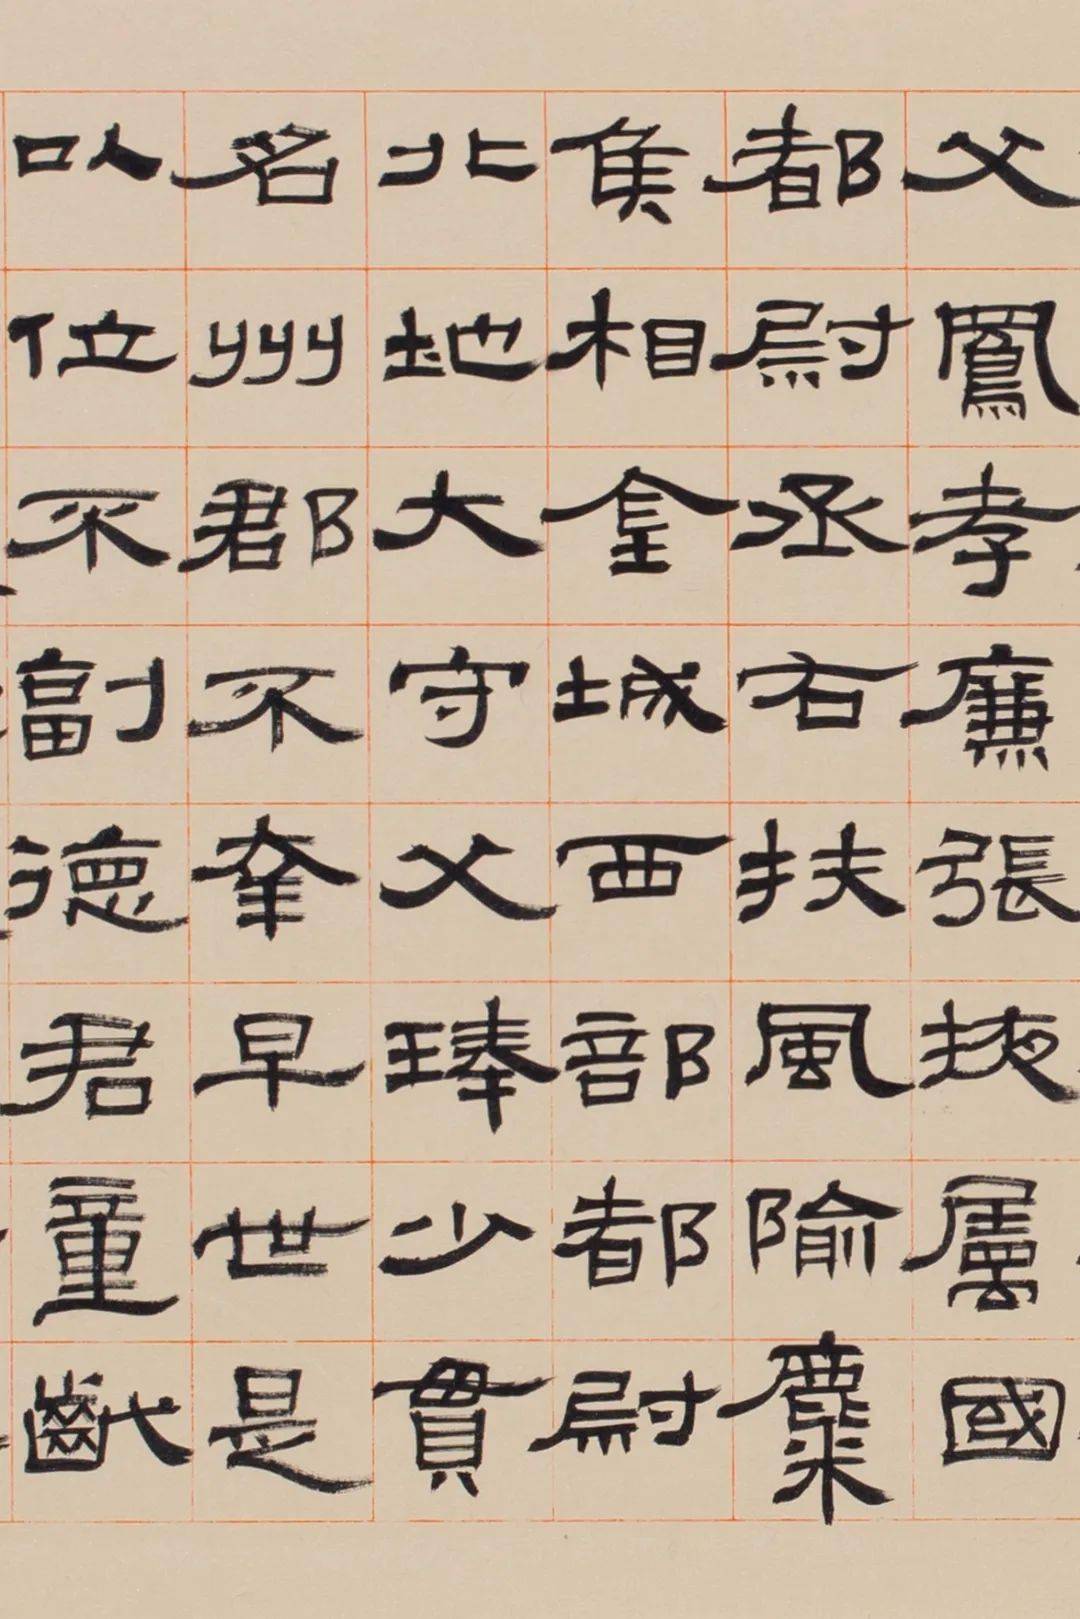 父鳳孝廉張掖屬國
都尉丞右扶風隃麋
侯相金城西部都尉
北地大守父琫少貫
名州郡不幸早世是
以位不副德君童齔